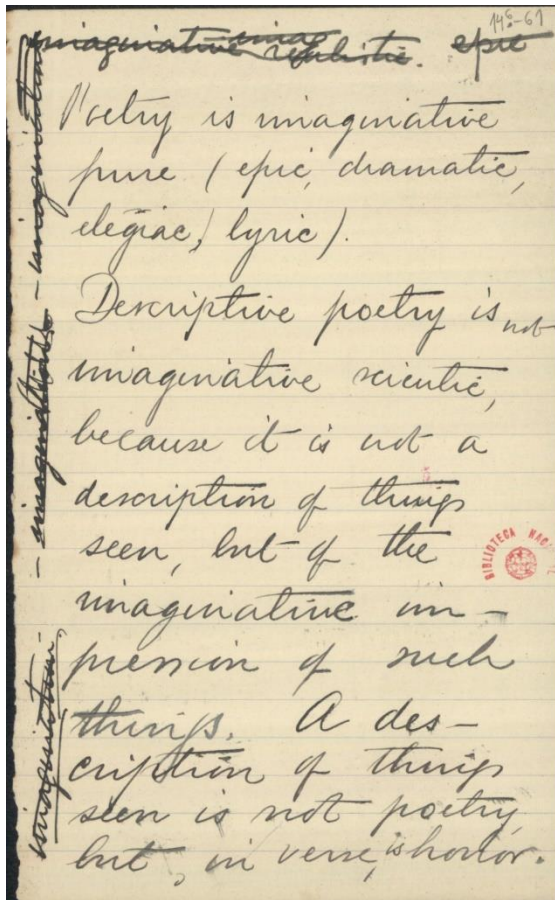 14 6-61
imaginative imag
realistic. epic
Poetry is imaginative
pure (epic, dramatic,
elegiac, lyric).
Descriptive poetry is not
imaginative scientic,
because it is not a
description of things
seen, but of the
imaginative im-
pression of such
things. A des-
cription of things
seen is not poetry,
but, in verse, is horror.
imagination - - imagination - imagination
BIBLIOTECA NAC